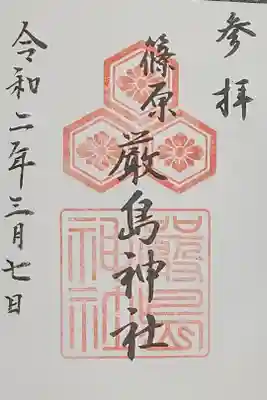 参拝
篠原
厳島神社
令和二年三月七日
嚴島
神社